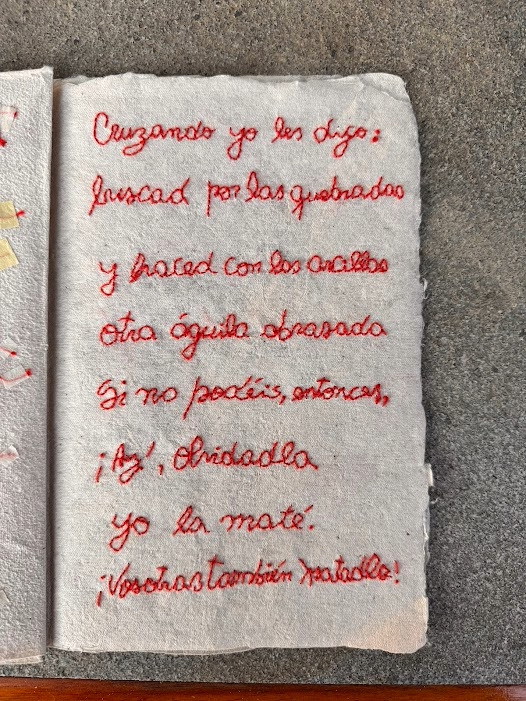 Cruzando yo les digo:
buscad por las quebradas
y haced con las arcillas
otra águila abrasada
Si no podéis, entonces,
¡Ay!, olvidadla
yo la maté.
¡Vosotras también matadla!